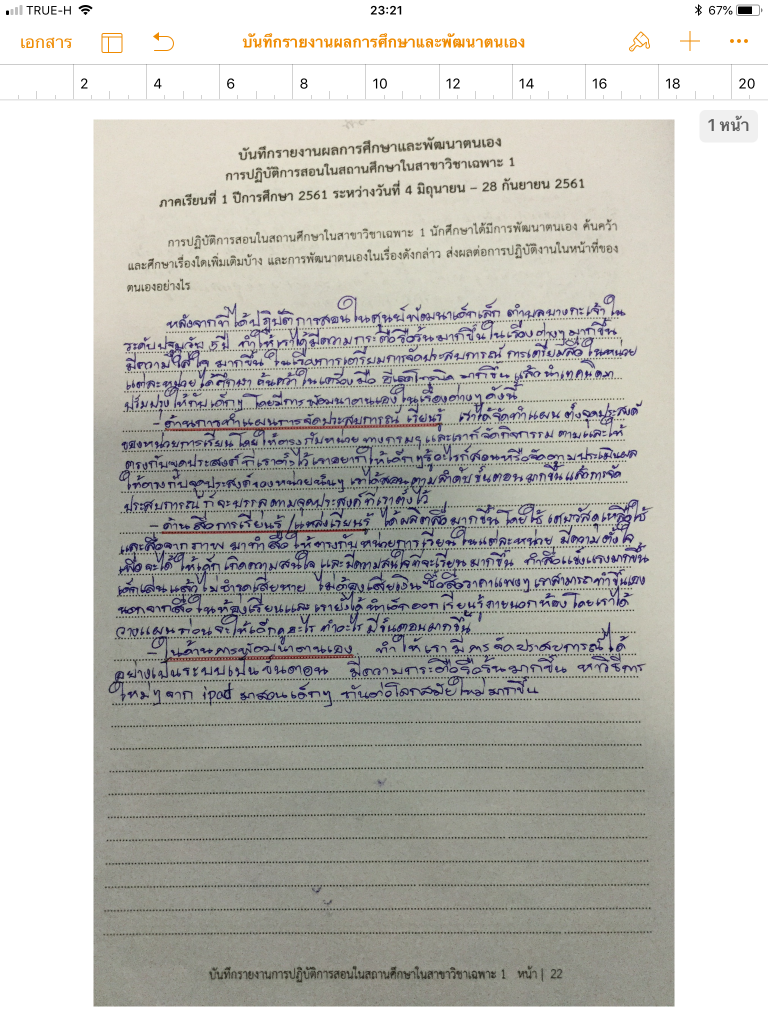 TRUE-H 23:21 67%
เอกสาร บันทึกรายงานผลการศึกษาและพัฒนาตนเอง
2 4 6 8 10 12 14 16 18 20
1 หน้า
บันทึกรายงานผลการศึกษาและพัฒนาตนเอง
การปฏิบัติการสอนในสถานศึกษาในสาขาวิชาเฉพาะ 1
ภาคเรียนที่ 1 ปีการศึกษา 2561 ระหว่างวันที่ 4 มิถุนายน – 28 กันยายน 2561
การปฏิบัติการสอนในสถานศึกษาในสาขาวิชาเฉพาะ 1 นักศึกษาได้มีการพัฒนาตนเอง ค้นคว้า
และศึกษาเรื่องใดเพิ่มเติมบ้าง และการพัฒนาตนเองในเรื่องดังกล่าว ส่งผลต่อการปฏิบัติงานในหน้าที่ของ
ตนเองอย่างไร
หลังจากที่ได้ปฏิบัติการสอนในศูนย์พัฒนาเด็กเล็ก ตำบลบางกะเจ้าใน
ระดับปฐมวัย ปี ทำให้เราได้มีความกระตือรือร้นมากขึ้นในเรื่องต่างๆ มากขึ้น
มีความใส่ใจมากขึ้น ในเรื่องการเตรียมการจัดประสบการณ์ การเตรียมสื่อ ในหน่วย
แต่ละหน่วย ได้ศึกษา ค้นคว้าในเครื่องมือ มากขึ้น แล้วนำเทคนิคมา
ปรับปรุงให้กับเด็กๆ โดยมีการพัฒนาตนเองในเรื่องต่างๆ ดังนี้
- ด้านการทำแผนการจัดประสบการณ์ เรียนรู้ เราได้จัดทำแผน ตั้งจุดประสงค์
ของหน่วยการเรียน โดยให้ตรงกับหน่วย และเราก็จัดกิจกรรม ตามและให้
ตรงกับจุดประสงค์ ที่เราตั้งไว้ เราอยากให้เด็กๆรู้อะไรก็สอนหรือจัดตามประเมินผล
ให้ตรงกับจุดประสงค์ของหน่วยนั้นๆ เราได้สอนตามลำดับขั้นตอนมากขึ้นแล้วการจัด
ประสบการณ์ ก็จะบรรลุตามจุดประสงค์ที่เราตั้งไว้
- ด้านสื่อการเรียนรู้ / แหล่งเรียนรู้ ได้ผลิตสื่อมากขึ้น โดยใช้ เศษวัสดุเหลือใช้
และสื่อจากภาพ มาทำสื่อ ให้ตรงกับหน่วยการเรียนในแต่ละหน่วย มีความตั้งใจ
เพื่อจะได้ให้เด็กเกิดความสนใจ และมีความสนใจที่จะเรียนมากขึ้น ทำสื่อแข็งแรงมากขึ้น
เด็กเล่นแล้วไม่ชำรุดเสียหาย ไม่ต้องเสียเงินซื้อสื่อราคาแพงๆ เราสามารถทำขึ้นเอง
นอกจากสื่อในห้องเรียนและเรายังได้นำเด็กออกเรียนรู้ภายนอกห้อง โดยเราได้
วางแผนก่อนจะให้เด็กดูอะไร ทำอะไร มีขั้นตอนมากขึ้น
- ในด้านการพัฒนาตนเอง ทำให้เรามีการจัดประสบการณ์ได้
อย่างเป็นระบบเป็นขั้นตอน มีความกระตือรือร้นมากขึ้น หาวิธีการ
ใหม่ๆจาก ipad มาสอนเด็กๆ ทันต่อโลกสมัยใหม่มากขึ้น
บันทึกรายงานการปฏิบัติการสอนในสถานศึกษาในสาขาวิชาเฉพาะ 1 หน้า | 22